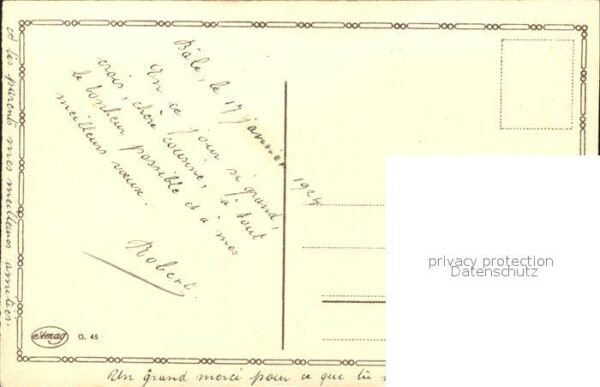 Bâle, le 17 janvier 1924
En ce jour si grand,
crois, chère cousine, à tout
le bonheur possible et à mes
meilleurs vœux.
Robert.
et tes parents mes meilleures amitiés.
Un grand merci pour ce que tu
Amag
O. 45
privacy protection
Datenschutz